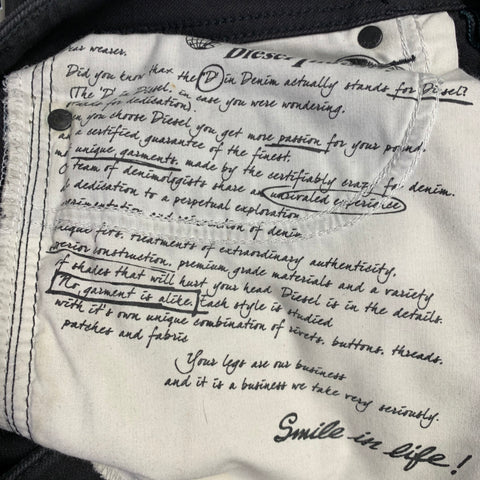 Diesel
ear wearer.
Did you know that the 'D' in Denim actually stands for Diesel?
(The 'D' in Diesel, in case you were wondering,
stands for dedication).
n you choose Diesel you get more passion for your pound.
a certified guarantee of the finest,
unique garments, made by the certifiably crazy for denim.
team of denimologists share an unrivaled experience
dedication to a perpetual exploration
erimentation and of denim
nique fits, treatments of extraordinary authenticity,
perior construction, premium grade materials and a variety
of shades that will hurt your head Diesel is in the details.
No garment is alike. Each style is studied
with it's own unique combination of rivets, buttons, threads,
patches and fabric
Your legs are our business
and it is a business we take very seriously.
Smile in life!